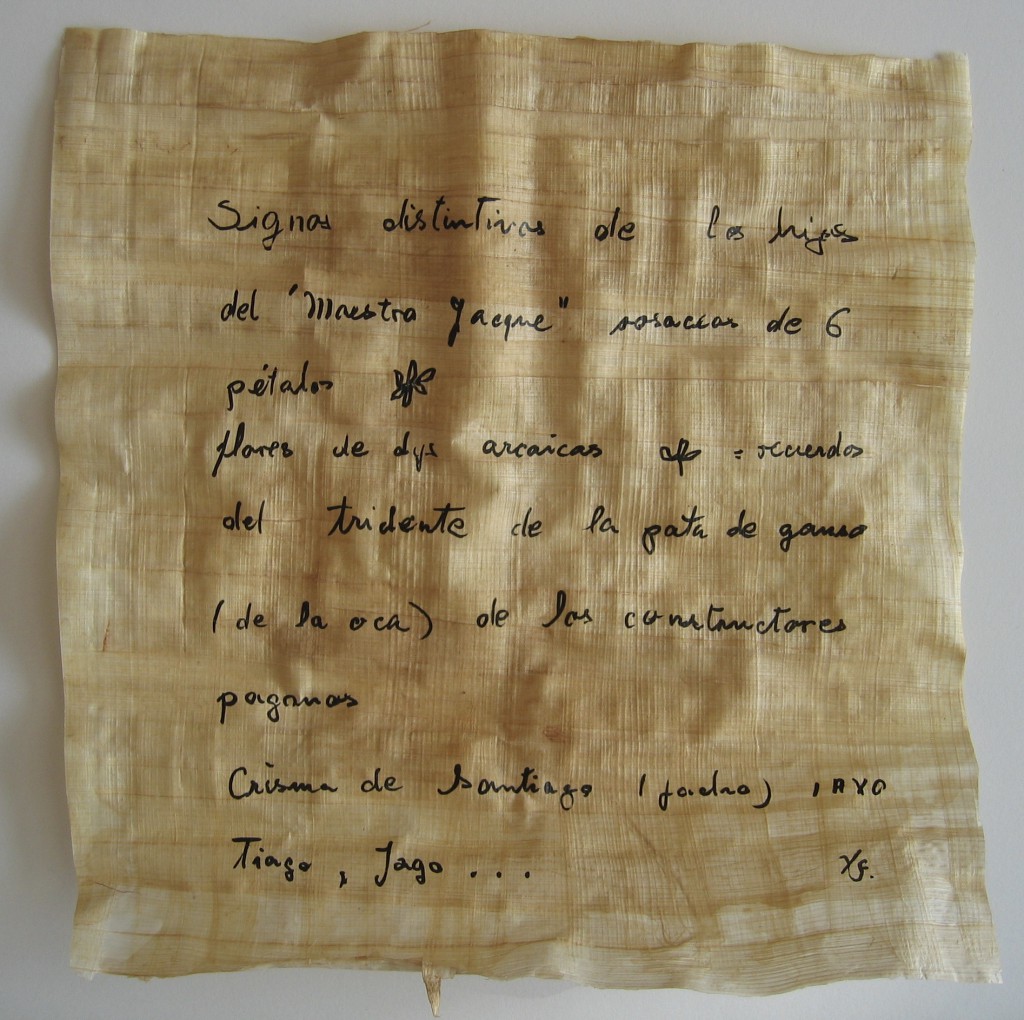 Signos distintivos de los hijos
del "Maestro Jacque" rosaceas de 6
pétalos
flores de dys arcaicas = recuerdos
del tridente de la pata de ganso
(de la oca) de los constructores
paganos
Crisma de Santiago (
Tiago, Jago ...